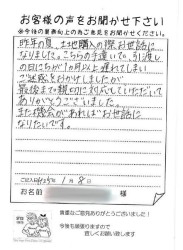 お客様の声をお聞かせ下さい
※今後の業務向上の為ご意見をお聞かせください。
昨年の夏、土地購入の際お世話に
なりました。こちらの手違いで、引渡し
の日にちが1ヵ月以上遅れてしまい
ご迷惑をおかけしましたが
最後まで親切に対応していただいて
ありがとうございました。
また機会があればお世話に
なりたいです。
1月8日
お名前
様
貴重なご意見ありがとうございました!
今後も頑張りますので
宜しくお願い致します